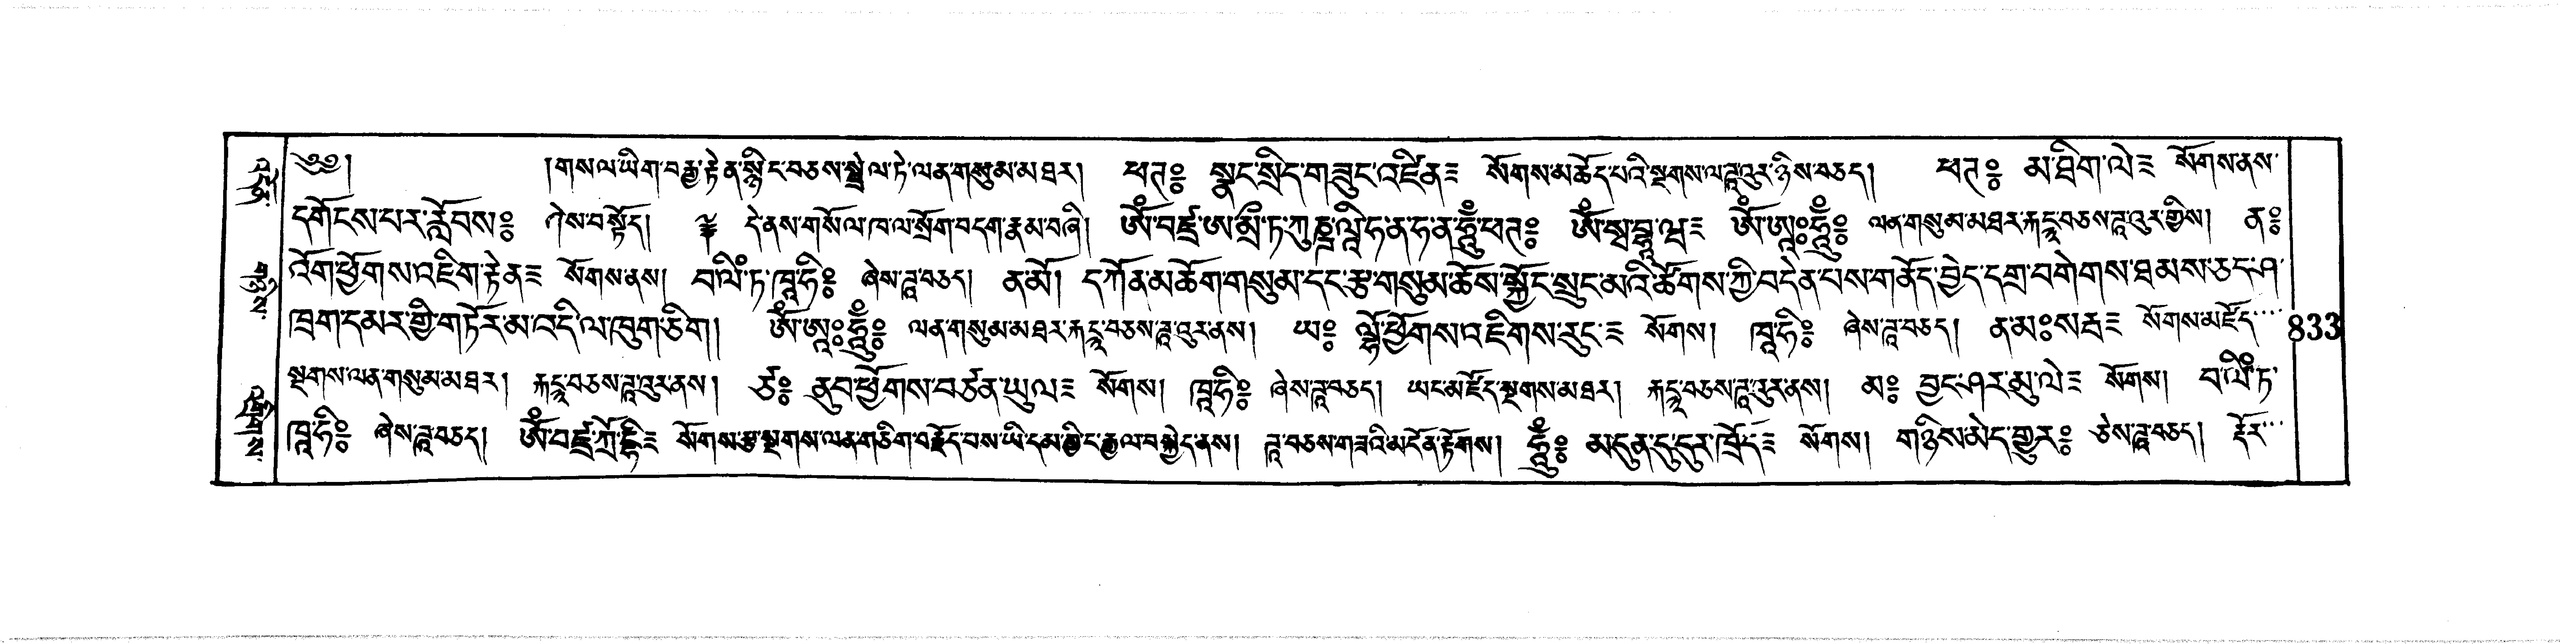 ༄༅། །གསལ་ཡིག་བརྒྱ་རྟེན་སྙིང་བཅས་སྤྲེལ་ཏེ་ལན་གསུམ་མཐར། ཕཊ༔ སྣང་སྲིད་གཟུང་འཛིན༴ སོགས་མཆོད་པའི་སྔགས་ལ་ཟླ་འུར་ཉིས་བཅད། ཕཊ༔ མ་ཐིག་ལེ༴ སོགས་ནས་
དགོངས་པར་རློབས༔ ཤེས་བསྟོད། ༈ དེ་ནས་གསོལ་ཁ་ལ་སྲོག་བདག་རྣམ་བཞི། ཨོཾ་བཛྲ་ཨ་མྲྀ་ཏ་ཀུཎྜ་ལཱི་ཧ་ན་ཧ་ན་ཧཱུྃ་ཕཊ༔ ཨོཾ་སྭ་བྷཱ་ཝ༴ ཨོཾ་ཨཱཿཧཱུྃ༔ ལན་གསུམ་མཐར་རྐང་དུང་བཅས་ཟླ་འུར་གྱིས། ན༔
འོག་ཕྱོགས་འཇིག་རྟེན༴ སོགས་ནས། བ་ལིཾ་ཏ་ཁཱ་ཧི༔ ཞེས་ཟླ་བཅད། ན་མོ། དཀོན་མཆོག་གསུམ་དང་རྩ་གསུམ་ཆོས་སྐྱོང་སྲུང་མའི་ཚོགས་ཀྱི་བདེན་པས་གནོད་བྱེད་དགྲ་བགེགས་ཐམས་ཅད་ཤ་
ཁྲག་དམར་གྱི་གཏོར་མ་འདི་ལ་ཁུག་ཅིག། ཨོཾ་ཨཱཿཧཱུྃ༔ ལན་གསུམ་མཐར་རྐང་དུང་བཅས་ཟླ་འུར་ནས། ཡ༔ ལྷོ་ཕྱོགས་འཇིགས་རུང༴ སོགས། ཁཱ་ཧི༔ ཞེས་ཟླ་བཅད། ན་མཿསརྦ༴ སོགས་མཛོད་
སྔགས་ལན་གསུམ་མཐར། རྐང་དུང་བཅས་ཟླ་འུར་ནས། ཙ༔ ནུབ་ཕྱོགས་བཙན་ཡུལ༴ སོགས། ཁཱ་ཧི༔ ཞེས་ཟླ་བཅད། ཡང་མཛོད་སྔགས་མཐར། རྐང་དུང་བཅས་ཟླ་འུར་ནས། མ༔ བྱང་ཤར་མུ་ལེ༴ སོགས། བ་ལིཾ་ཏ་
ཁཱ་ཧི༔ ཞེས་ཟླ་བཅད། ཨོཾ་བཛྲ་ཀྲོ་དྷི༴ སོགས་རྩ་སྔགས་ལན་གཅིག་བརྗོད་པས་ཡི་དམ་སྤྱི་ང་རྒྱལ་བསྐྱེད་ནས། ཟླ་བཅས་གཟའི་མངོན་རྟོགས། ཧཱུྃ༔ མདུན་དུ་དུར་ཁྲོད༴ སོགས། གཉིས་མེད་གྱུར༔ ཅེས་ཟླ་བཅད། རྡོར་
833